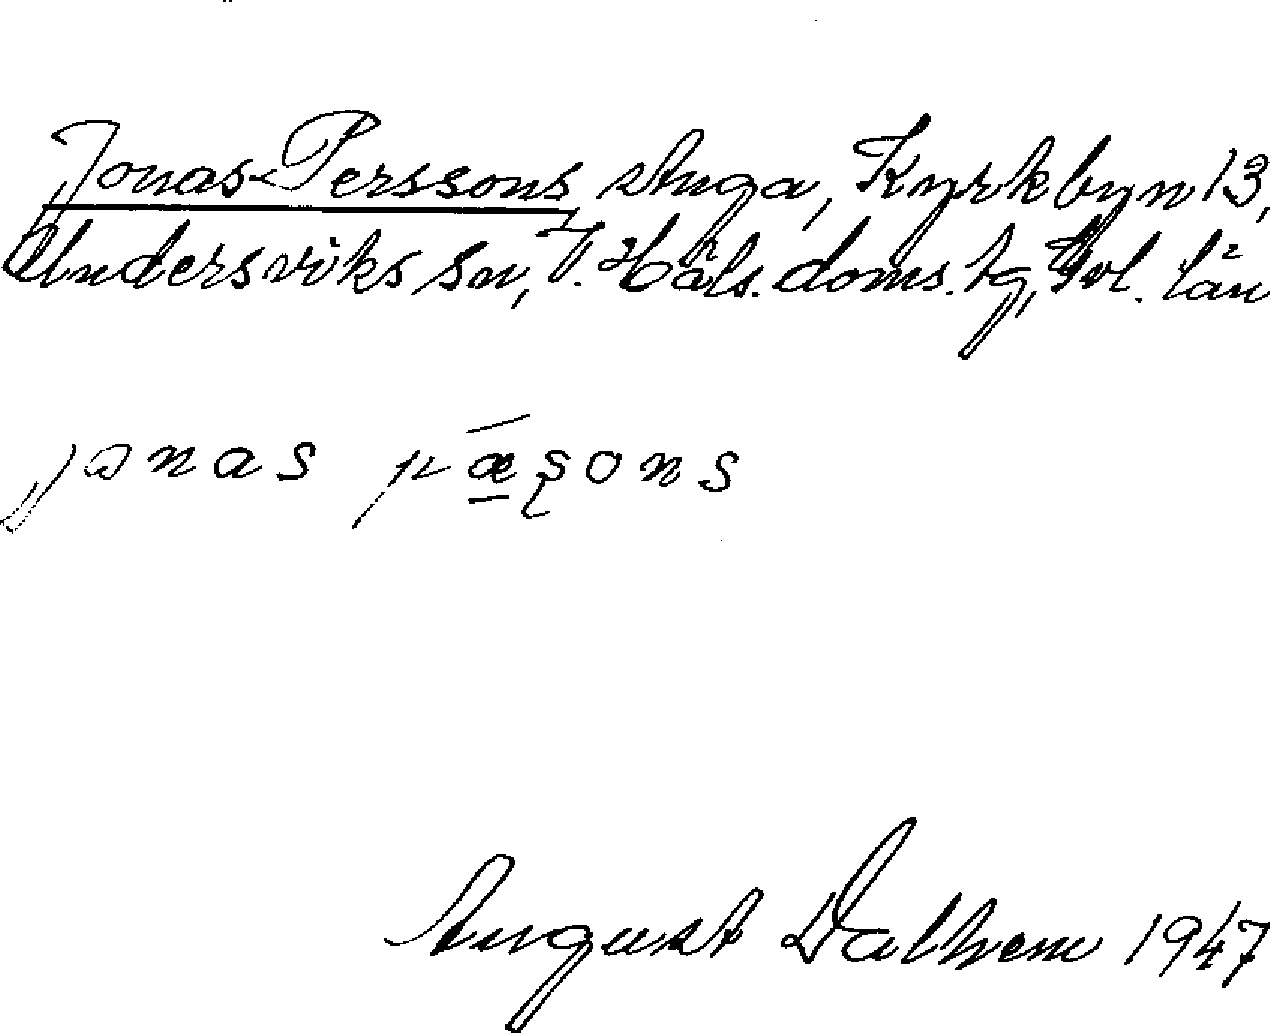 Jonas-Perssons stuga, Kyrkbyn 13,
Undersviks sn, V. Häls. doms. tg, Gvl. län
jonas pǽşons
August Dalhem 1947